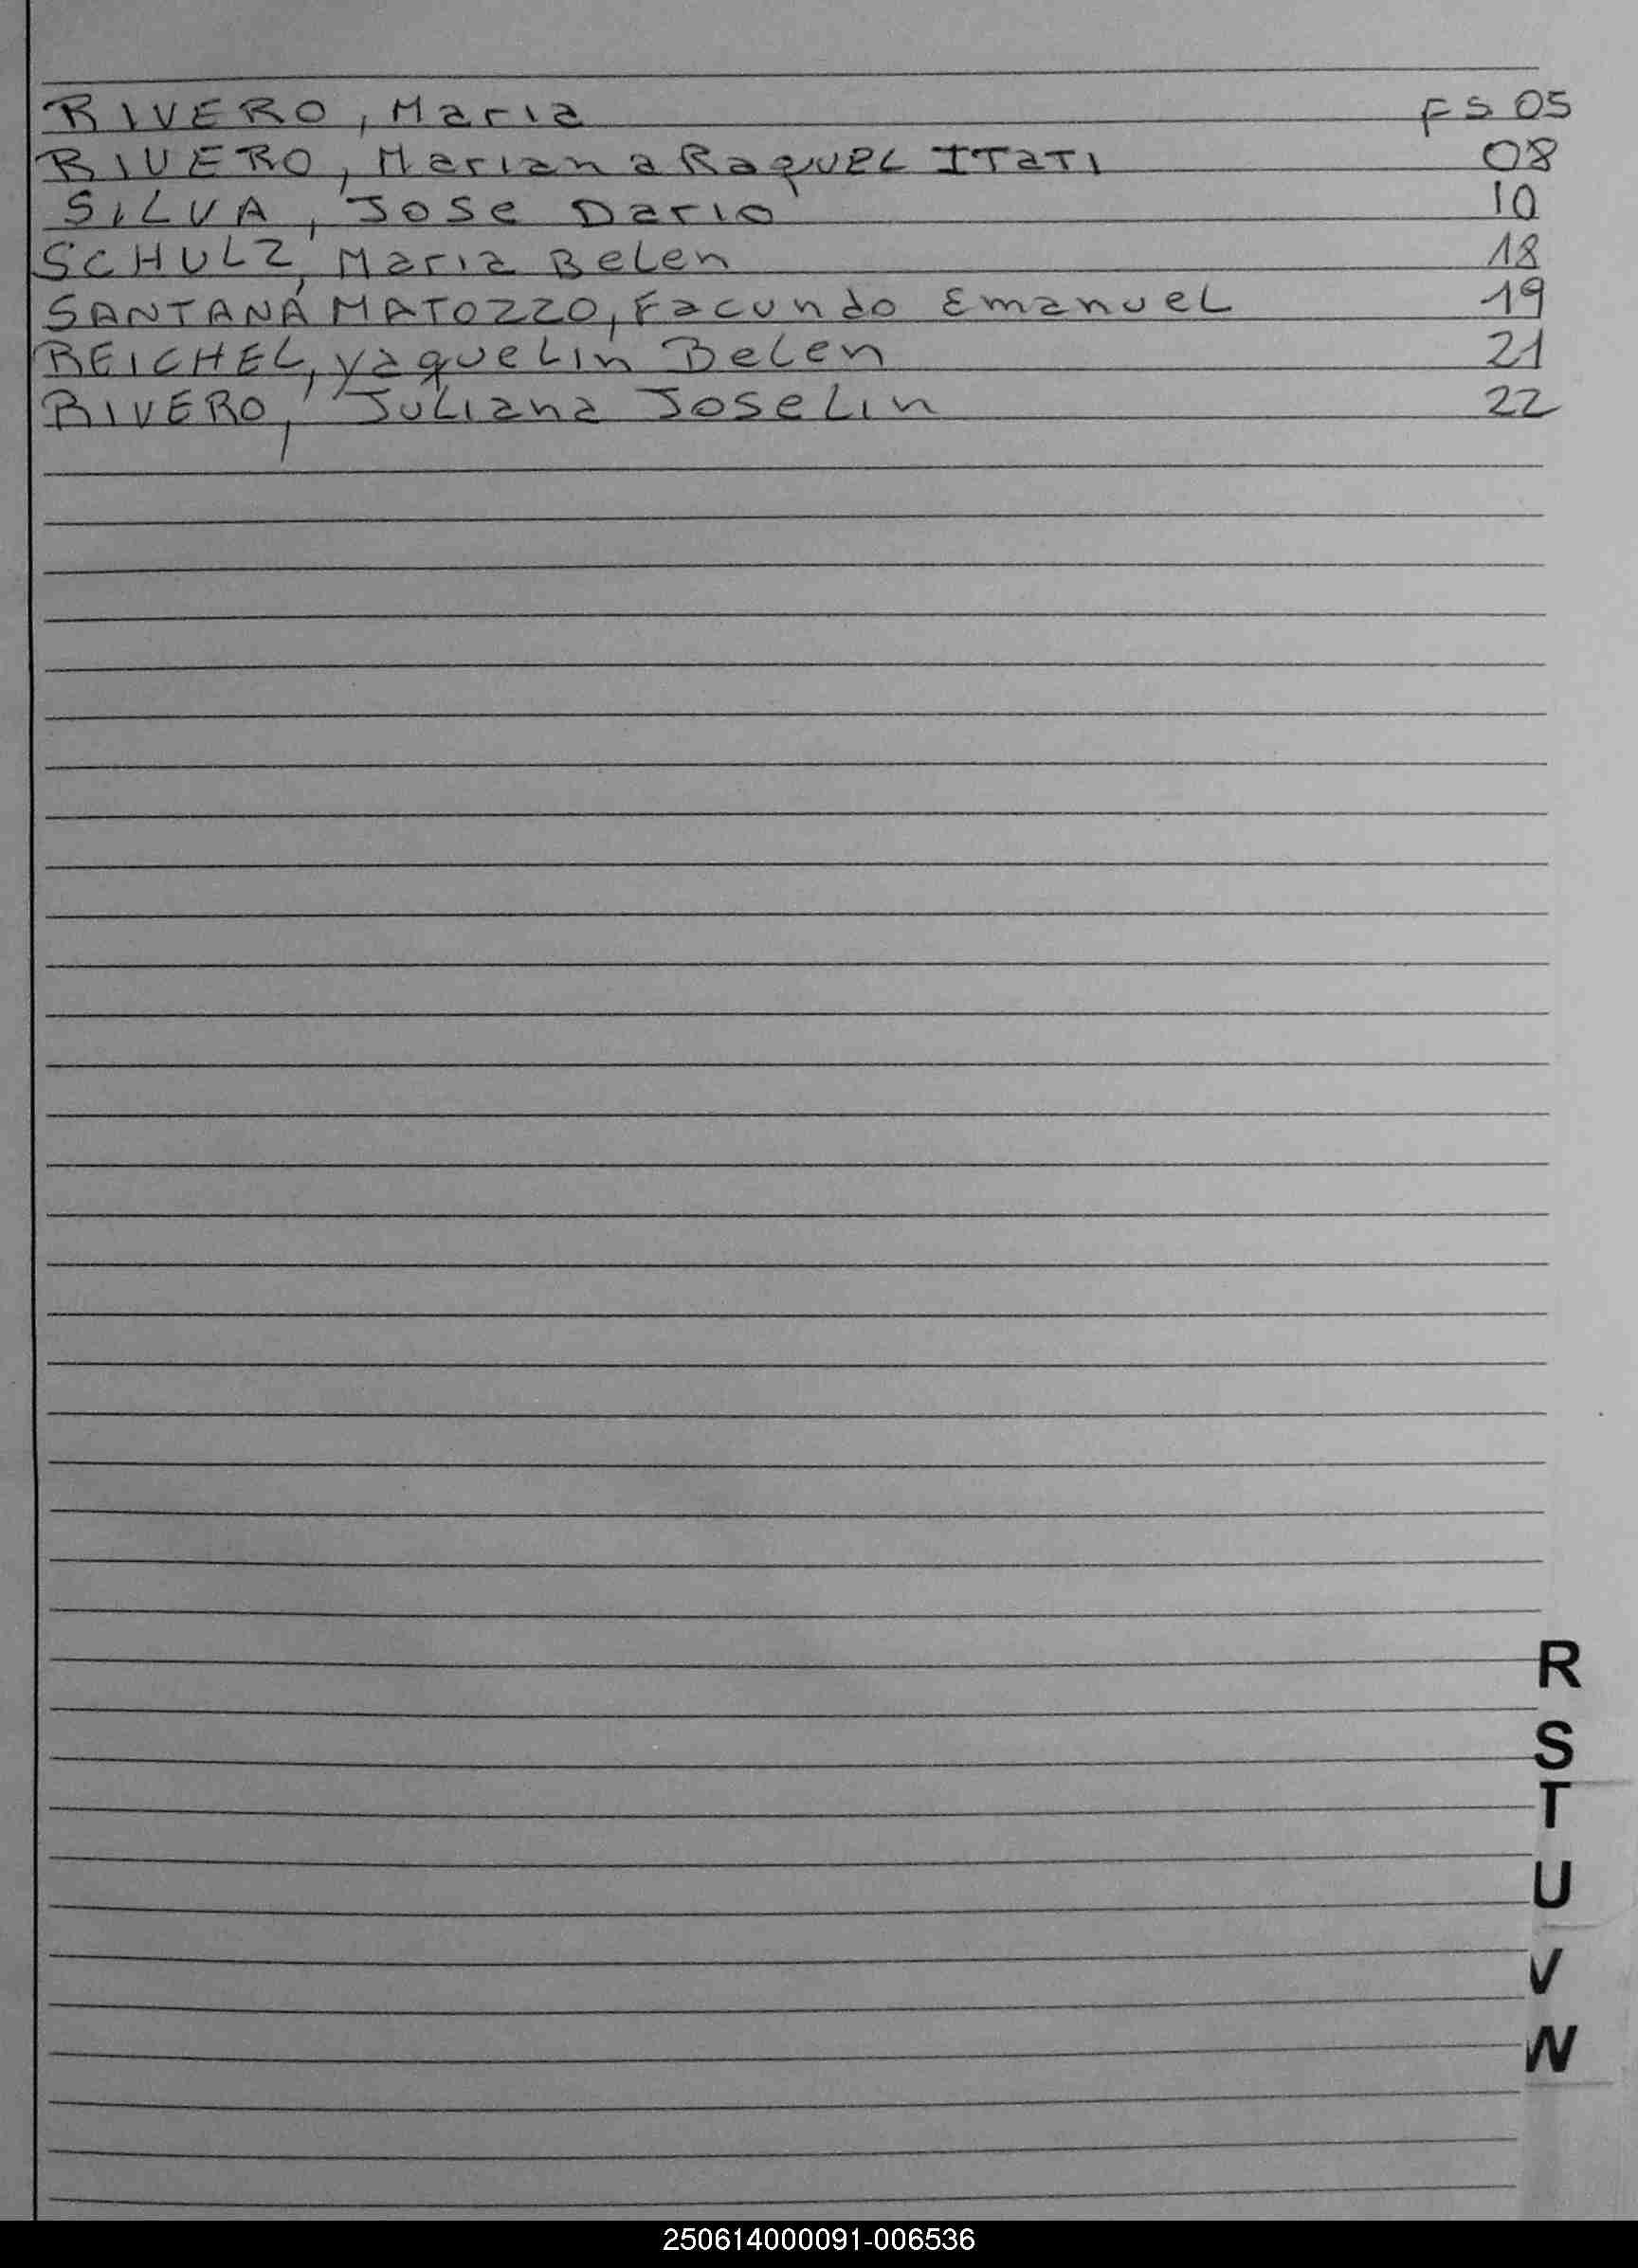 RIVERO, Maria FS 05
RIVERO, Mariana RaquEL ITaTI 08
SILVA, Jose Dario 10
SCHULZ, Maria Belen 18
SANTANA MATOZZO, Facundo EmanueL 19
REICHEL, yaqueLin BeLen 21
RIVERO, JuLiana JoseLin 22
R
S
T
U
V
W
250614000091-006536